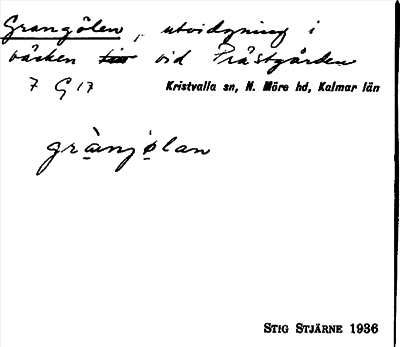 Grangölen, utvidgning i
bäcken vid Prästgården
7 G 17 Kristvalla sn, N. Möre hd, Kalmar län
grànjølan
STIG STJÄRNE 1936